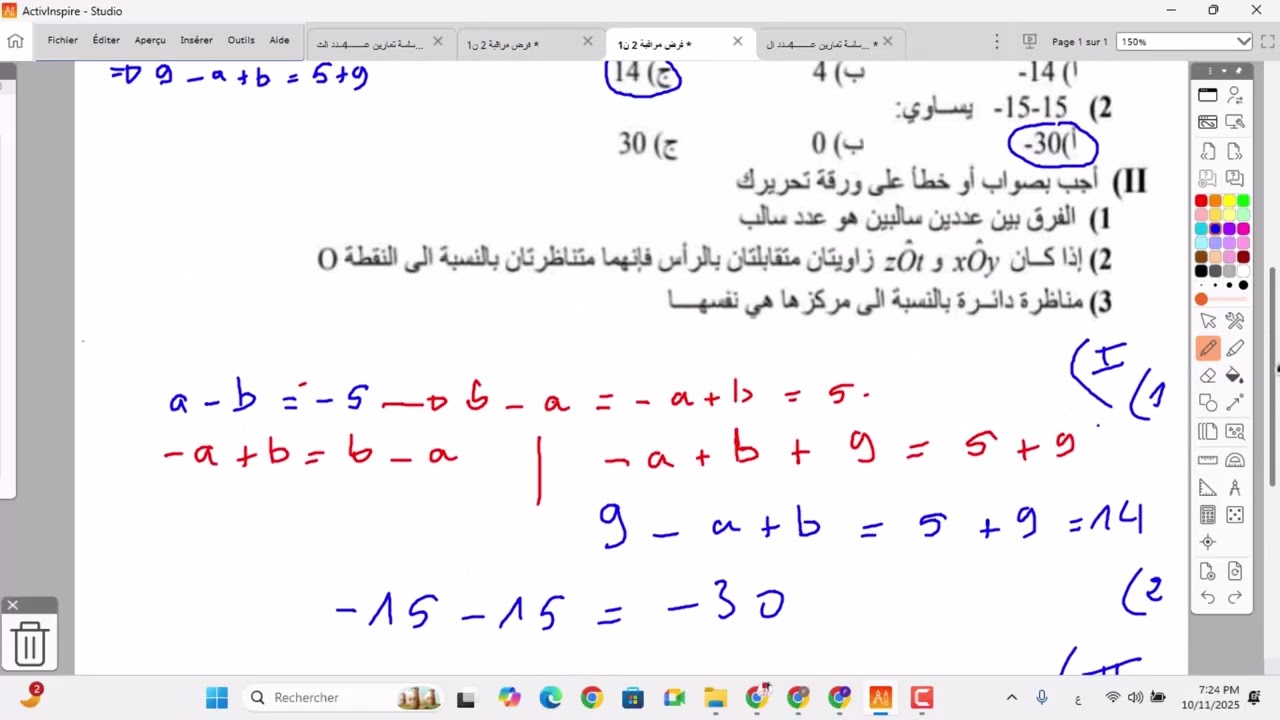 ActivInspire - Studio
Fichier Éditer Aperçu Insérer Outils Aide
فرض مراقبة 2 ن1 *
فرض مراقبة 2 ن1 *
Page 1 sur 1
150%
=> 9 - a + b = 5+9
أ) 14- ب) 4 ج) 14
2) -15-15 يساوي:
أ) 30- ب) 0 ج) 30
II) أجب بصواب أو خطأ على ورقة تحريرك
1) الفرق بين عددين سالبين هو عدد سالب
2) إذا كان xÔy و zÔt زاويتان متقابلتان بالرأس فإنهما متناظرتان بالنسبة الى النقطة O
3) مناظرة دائرة بالنسبة الى مركزها هي نفسها
(I
(1
a - b = -5 → b - a = - a + b = 5.
- a + b = b - a | - a + b + 9 = 5 + 9
9 - a + b = 5 + 9 = 14
(2
-15 - 15 = -30
(II
2
Rechercher
ع
7:24 PM
10/11/2025